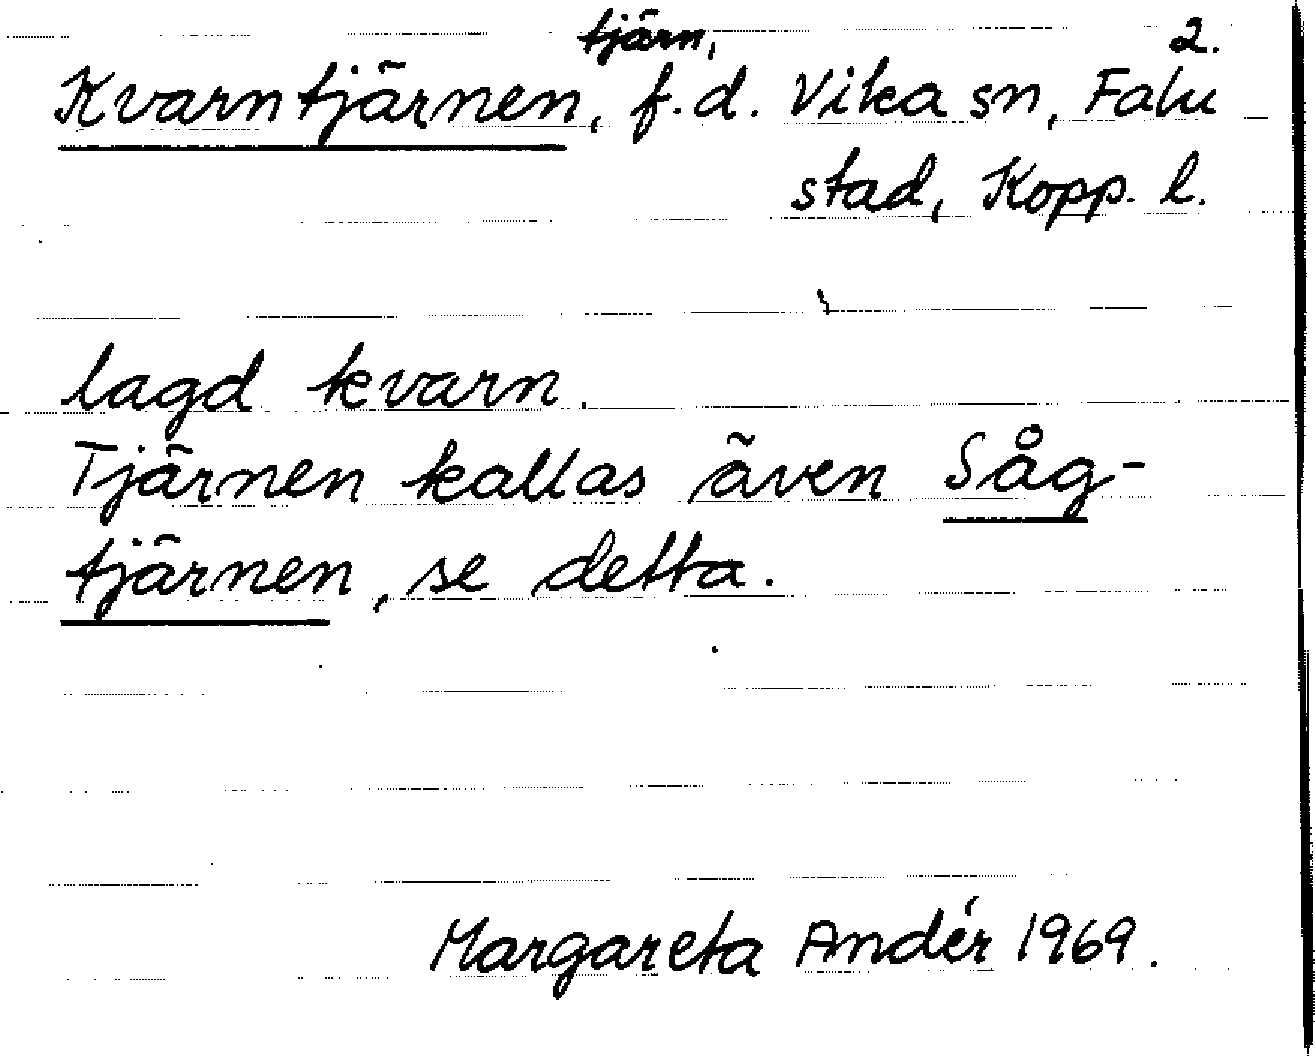 tjärn, 2.
Kvarntjärnen, f.d. Vika sn, Falu
stad, Kopp. l.
lagd kvarn.
Tjärnen kallas även Såg-
tjärnen, se detta.
Margareta Andér 1969.